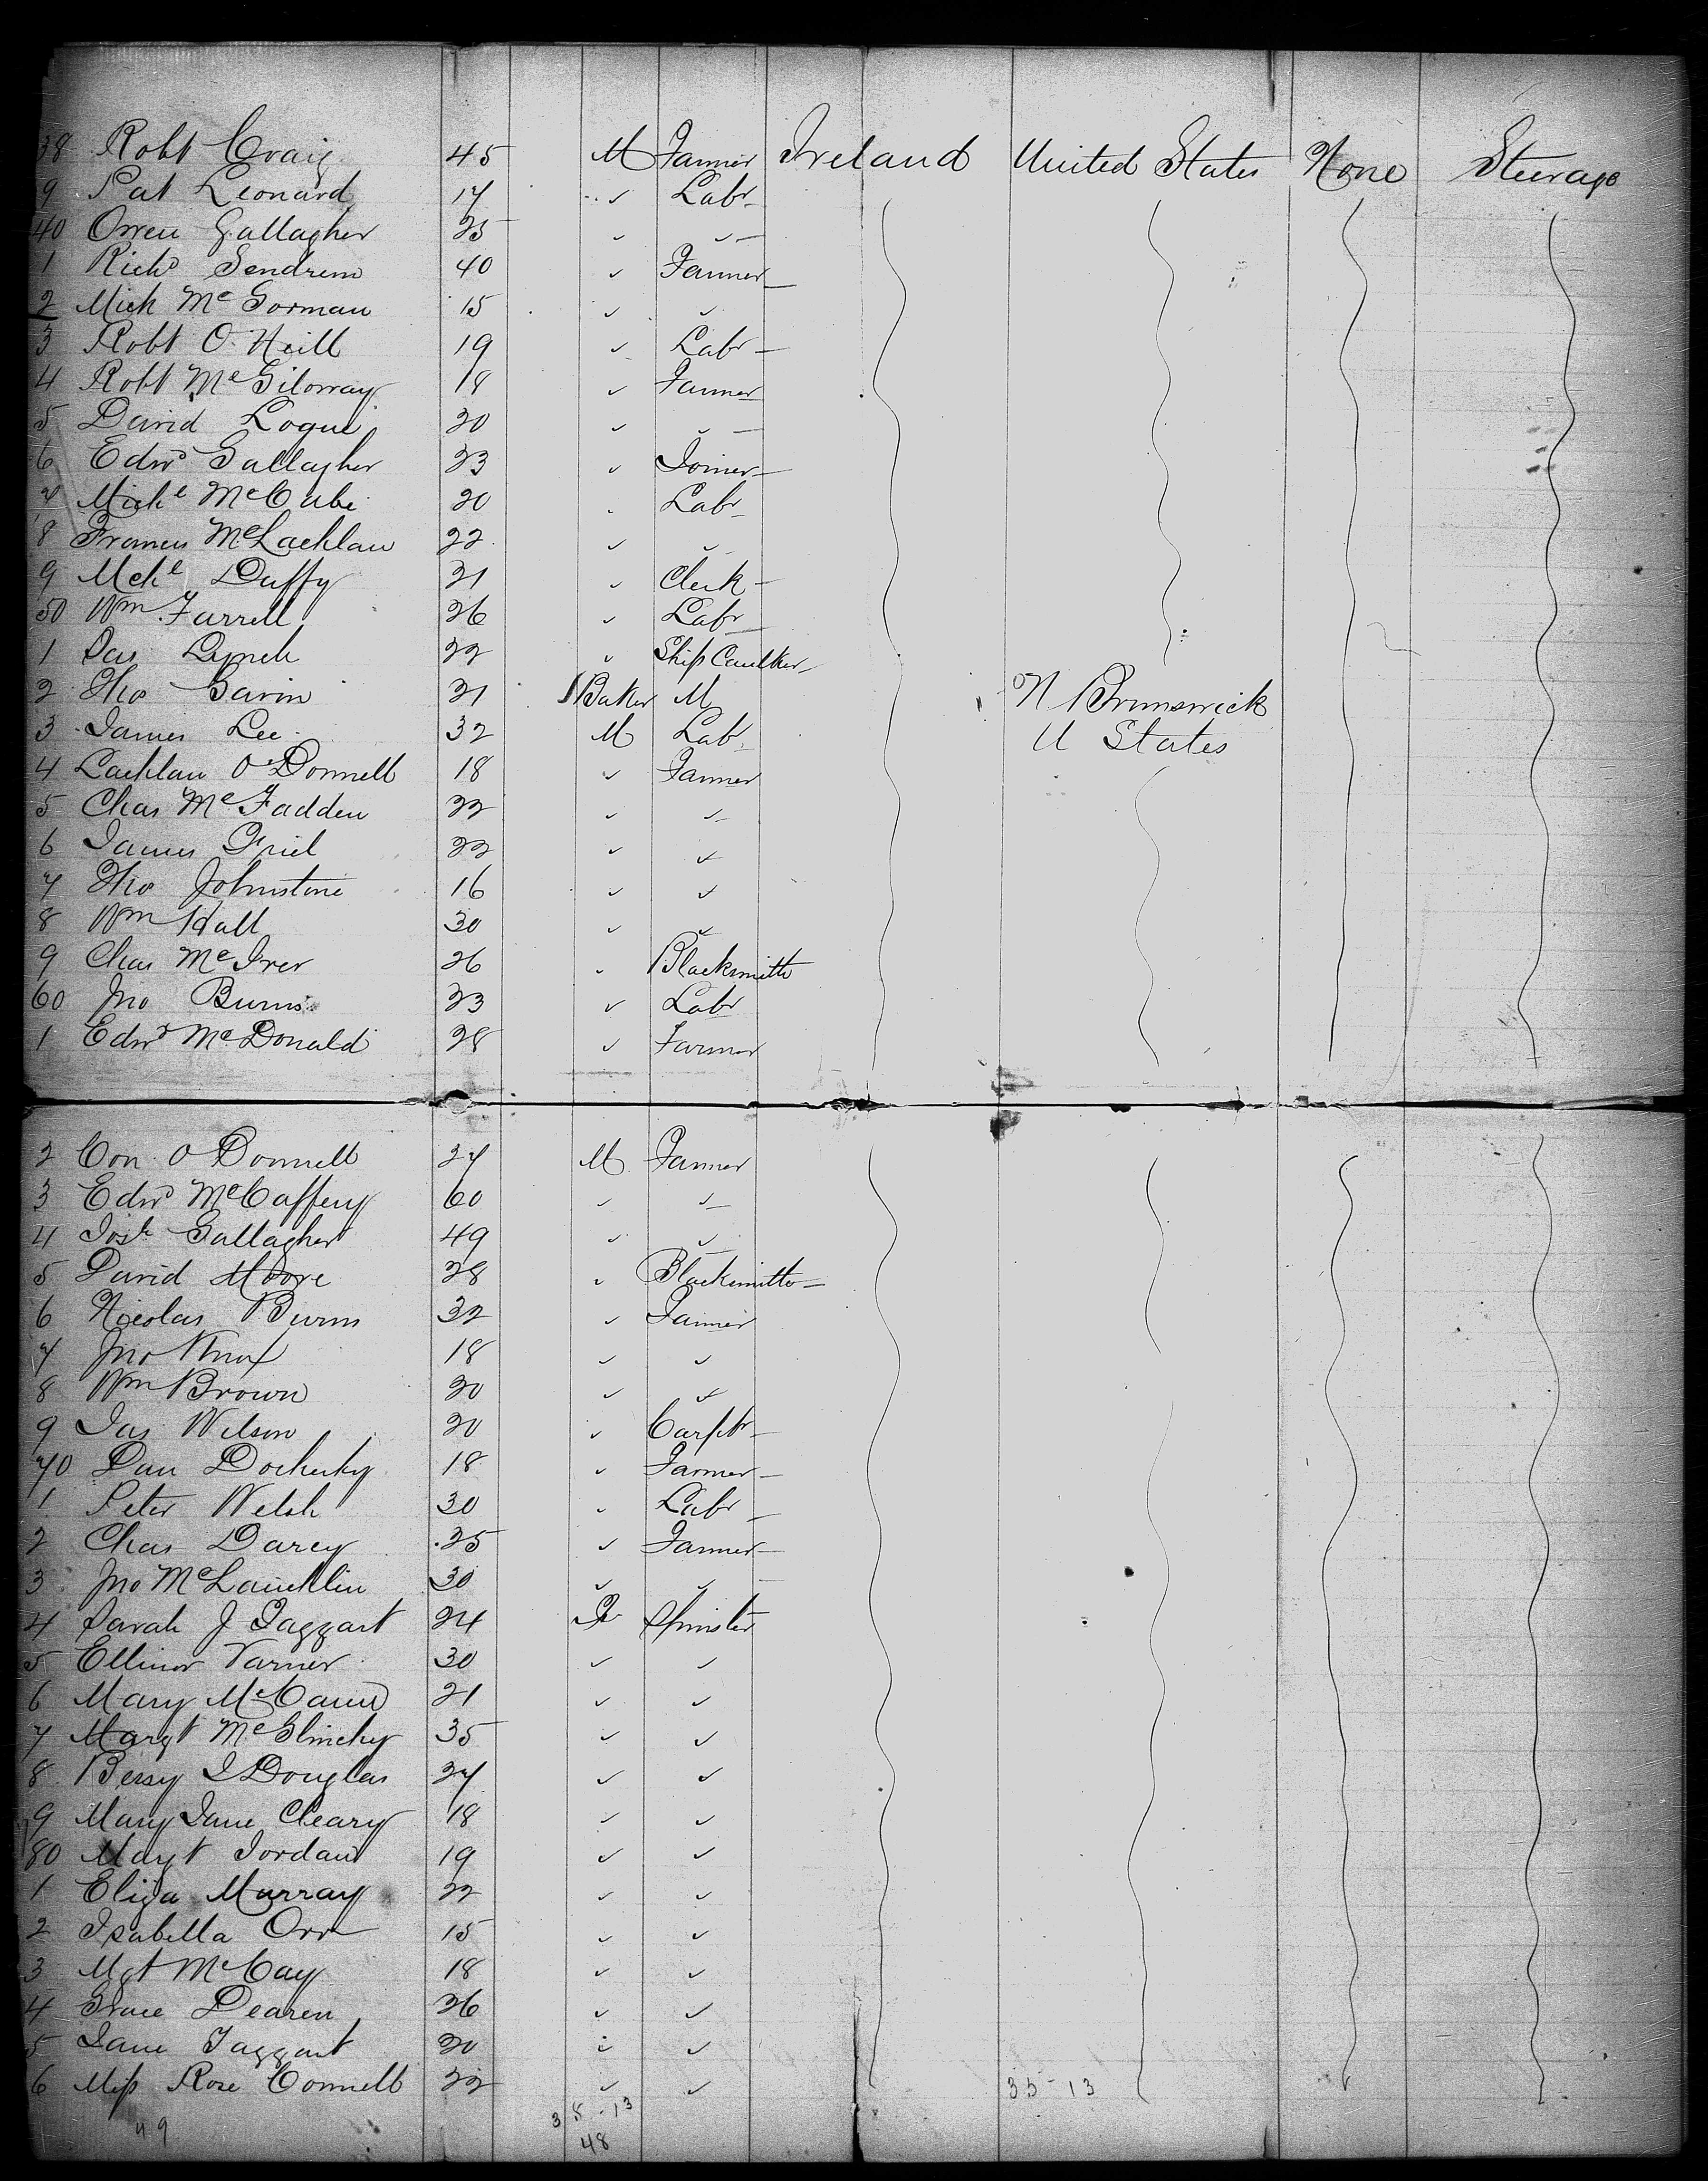 38 Robt Craig 45 M Farmer Ireland United States None Steerage
9 Pat Leonard 17 ✓ Labr
40 Owen Gallagher 25 ✓ ✓
1 Richd Sendrem 40 ✓ Farmer
2 Mich McGorman 15 ✓ ✓
3 Robt O'Neill 19 ✓ Labr
4 Robt McGilloway 18 ✓ Farmer
5 David Logue 20 ✓ ✓
6 Edwd Gallagher 23 ✓ Joiner
7 Michl McCabe 20 Labr
8 Francis McLachlan 22 ✓ ✓
9 Mchl Duffy 21 ✓ Clerk
50 Wm Farrell 26 ✓ Labr
1 Pat Lynch 22 ✓ Ship Caulker
2 Tho Gavin 21 Baker M N Brunswick
3 James Lee 32 M Labr U States
4 Lachlan O'Donnell 18 ✓ Farmer
5 Chas McFadden 22 ✓ ✓
6 James Friel 22 ✓ ✓
7 Tho Johnstone 16 ✓ ✓
8 Wm Hall 30 ✓ ✓
9 Chas McIver 26 ✓ Blacksmith
60 Jno Burns 23 ✓ Labr
1 Edwd McDonald 28 ✓ Farmer
2 Con O'Donnell 27 M Farmer
3 Edwd McCaffery 60 ✓ ✓
4 Josh Gallagher 49 ✓ ✓
5 David Moore 28 ✓ Blacksmith
6 Nicolas Burns 32 ✓ Farmer
7 Jno Knox 18 ✓ ✓
8 Wm Brown 20 ✓ ✓
9 Jas Wilson 20 ✓ Carptr
70 Dan Docherty 18 ✓ Farmer
1 Peter Welsh 30 ✓ Labr
2 Chas Darcy 25 ✓ Farmer
3 Jno McLaucklin 30 ✓ ✓
4 Sarah J Taggart 24 F Spinster
5 Ellinor Varner 30 ✓ ✓
6 Mary McCann 21 ✓ ✓
7 Margt McGlinchy 35 ✓ ✓
8 Bessy I Douglas 27 ✓ ✓
9 Mary Jane Cleary 18 ✓ ✓
80 Mayt Jordan 19 ✓ ✓
1 Eliza Murray 22 ✓ ✓
2 Isabella Orr 15 ✓ ✓
3 Mgt McCay 18 ✓ ✓
4 Grace Dearen 26 ✓ ✓
5 Jane Taggart 20 ✓ ✓
6 Miss Rose Connell 22 ✓ ✓ 35-13
49 35-13
48